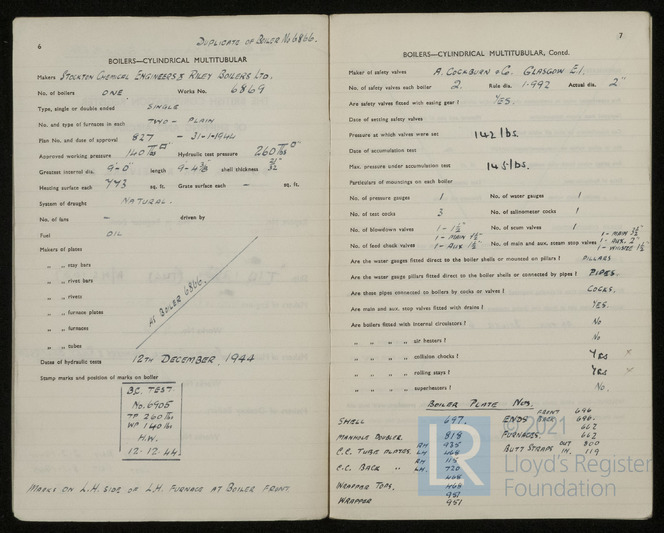 6
DUPLICATE OF BOILER No 6866.
BOILERS—CYLINDRICAL MULTITUBULAR
Makers STOCKTON CHEMICAL ENGINEERS & RILEY BOILERS LTD.
No. of boilers ONE Works No. 6869
Type, single or double ended SINGLE
No. and type of furnaces in each TWO - PLAIN
Plan No. and date of approval 827 - 31-1-1944
Approved working pressure 140 lbs □" Hydraulic test pressure 260 lbs □"
Greatest internal dia. 9'-0" length 9'-4 3/8 shell thickness 21/32"
Heating surface each 773 sq. ft. Grate surface each — sq. ft.
System of draughs NATURAL.
No. of fans — driven by
Fuel OIL
Makers of plates
" " stay bars
" " rivet bars
" " rivets
" " furnace plates
" " furnaces
" " tubes
AS BOILER 6866.
Dates of hydraulic tests 12TH DECEMBER. 1944
Stamp marks and position of marks on boiler
B.C. TEST
No. 6905
TP 260 lbs
WP 140 lbs
H.W.
12.12.44.
MARKS ON L.H. SIDE OF L.H. FURNACE AT BOILER FRONT
7
BOILERS—CYLINDRICAL MULTITUBULAR, Contd.
Maker of safety valves A. COCKBURN & Co. GLASGOW E.1.
No. of safety valves each boiler 2. Rule dia. 1.992 Actual dia. 2"
Are safety valves fitted with easing gear? YES.
Date of setting safety valves
Pressure at which valves were set 142 lbs.
Date of accumulation test
Max. pressure under accumulation test 145 lbs.
Particulars of mountings on each boiler
No. of pressure gauges 1 No. of water gauges 1
No. of test cocks 3 No. of salinometer cocks 1
No. of blowdown valves 1 - 1½" No. of scum valves 1
No. of feed check valves 1 - MAIN 1½" 1 - AUX 1½" No. of main and aux. steam stop valves 1 - MAIN 3½" 1 - AUX. 2" 1 - WHISTLE 1½"
Are the water gauges fitted direct to the boiler shells or mounted on pillars? PILLARS
Are the water gauge pillars fitted direct to the boiler shells or connected by pipes? PIPES.
Are these pipes connected to boilers by cocks or valves? COCKS.
Are main and aux. stop valves fitted with drains? YES.
Are boilers fitted with internal circulators? No
" " " " air heaters? No
" " " " collision chocks? YES ×
" " " " rolling stays? YES ×
" " " " superheaters? No.
BOILER PLATE Nos.
SHELL 697. ENDS FRONT 696
BACK 696.
MANHOLE DOUBLER. 818 FURNACES. 662
662
C.C. TUBE PLATES. RH 935 BUTT STRAPS OUT 800
LH 468 IN. 119
C.C. BACK " RH 115
LH. 720
WRAPPER TOPS. 468
468
WRAPPER 951
951
© 2021
LR
Lloyd's Register
Foundation